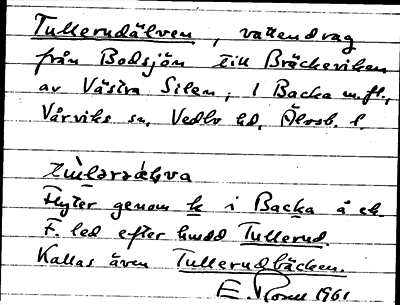 Tullerudälven, vattendrag
från Bodsjön till Bräckeviken
av Västra Silen, i Backa m.fl.,
Vårviks sn, Vedbo hd, Älvsb. l.
Flyter genom h i Backa å ek.
F. led efter hmdd Tullerud.
Kallas även Tullerudbäcken.
E. 1961